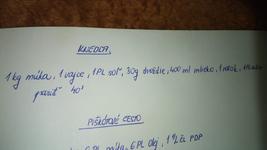 KNEDĽA
1 kg múka, 1 vajce, 1 PL soľ, 30g droždie, 400 ml mlieko, 1 rožok,
pariť 40'
PIŠKÓTOVÉ CESTO
6 PL múka, 6 PL olej, 1 PDP